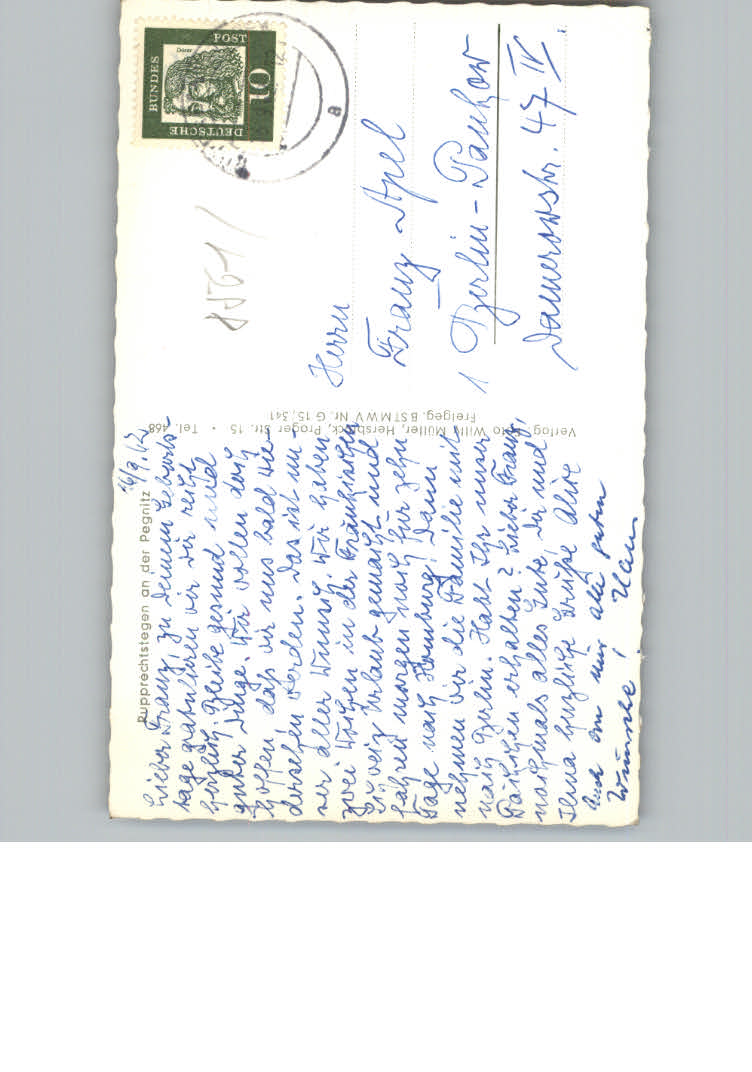 Rupprechtstegen an der Pegnitz
16/9.62
Lieber Franz, zu Deinem Geburts-
tage gratulieren wir Dir recht
herzlich. Bleibe gesund und
guter Dinge. Wir wollen doch
hoffen, daß wir uns bald wie-
dersehen werden. Das ist un-
ser aller Wunsch. Wir haben
zwei Wochen in der Fränkischen
Schweiz Urlaub gemacht und
fahren morgen noch für zehn
Tage nach Homburg. Dann
nehmen wir die Familie mit
nach Berlin. Habt Ihr unser
Päckchen erhalten? Lieber Franz,
nochmals alles Gute, Dir und
Irma herzliche Grüße Alice
Auch von mir alle guten
Wünsche! Hans
Verlag Foto Willy Müller, Hersbruck, Prager Str. 15 • Tel. 468
Freigeg. BSTMWV Nr. G 15, 341
DEUTSCHE
BUNDES
POST
10
Dürer
a
8561/
Herrn
Franz Apel
1 Berlin-Pankow
Damerowstr. 47 IV.